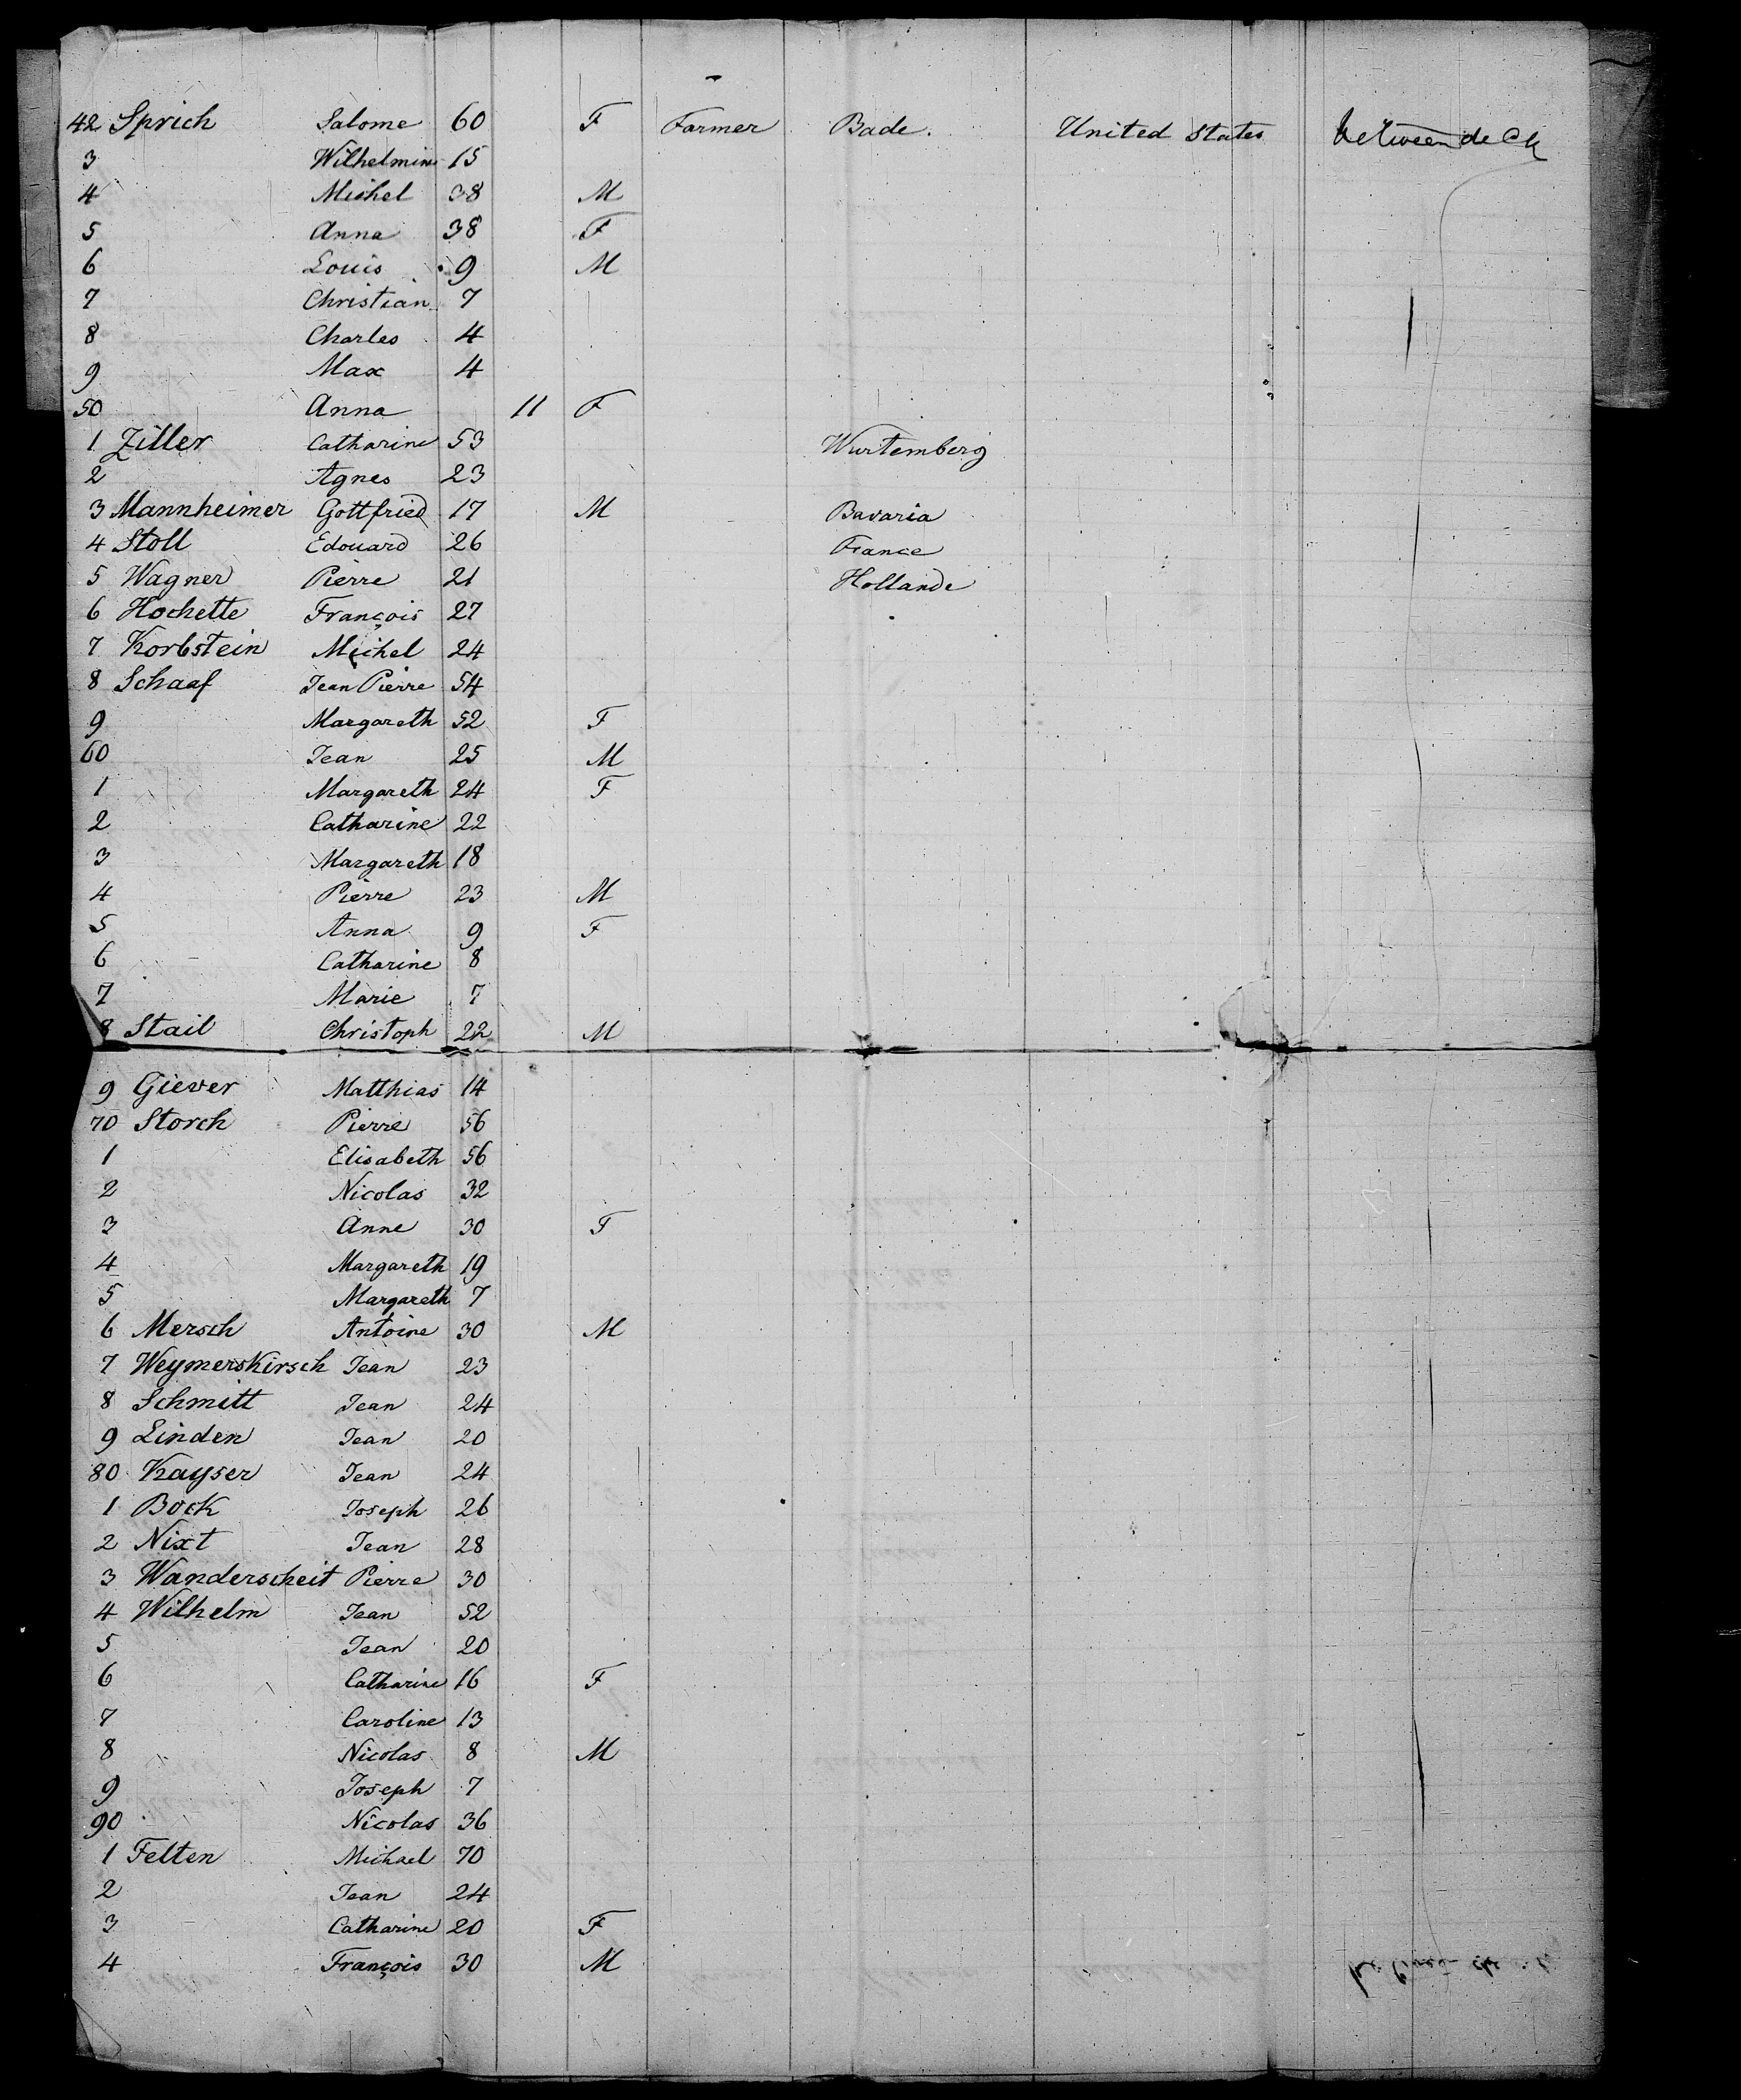 42 Sprich Salome 60 F Farmer Bade. United States between deck
3 Wilhelmine 15
4 Michel 38 M
5 Anna 38 F
6 Louis 9 M
7 Christian 7
8 Charles 4
9 Max 4
50 Anna 11 F
1 Ziller Catharine 53 Wurtemberg
2 Agnes 23
3 Mannheimer Gottfried 17 M Bavaria
4 Stoll Edouard 26 France
5 Wagner Pierre 21 Hollande
6 Hochette François 27
7 Korbstein Michel 24
8 Schaaf Jean Pierre 54
9 Margareth 52 F
60 Jean 25 M
1 Margareth 24 F
2 Catharine 22
3 Margareth 18
4 Pierre 23 M
5 Anna 9 F
6 Catharine 8
7 Marie 7
8 Stail Christoph 22 M
9 Giever Matthias 14
70 Storch Pierre 56
1 Elisabeth 56
2 Nicolas 32
3 Anne 30 F
4 Margareth 19
5 Margareth 7
6 Mersch Antoine 30 M
7 Weymerskirsch Jean 23
8 Schmitt Jean 24
9 Linden Jean 20
80 Kayser Jean 24
1 Bock Joseph 26
2 Nixt Jean 28
3 Wanderscheit Pierre 30
4 Wilhelm Jean 52
5 Jean 20
6 Catharine 16 F
7 Caroline 13
8 Nicolas 8 M
9 Joseph 7
90 Nicolas 36
1 Felten Michael 70
2 Jean 24
3 Catharine 20 F
4 François 30 M